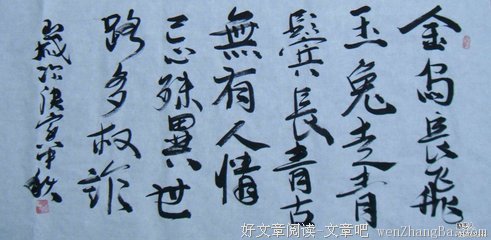 金烏長飛
玉兔走青
鬢長青古
無有人情
忌殊異世
路多权詐
歲次
秋
好文章阅读-文章吧 wenZhangBa.com